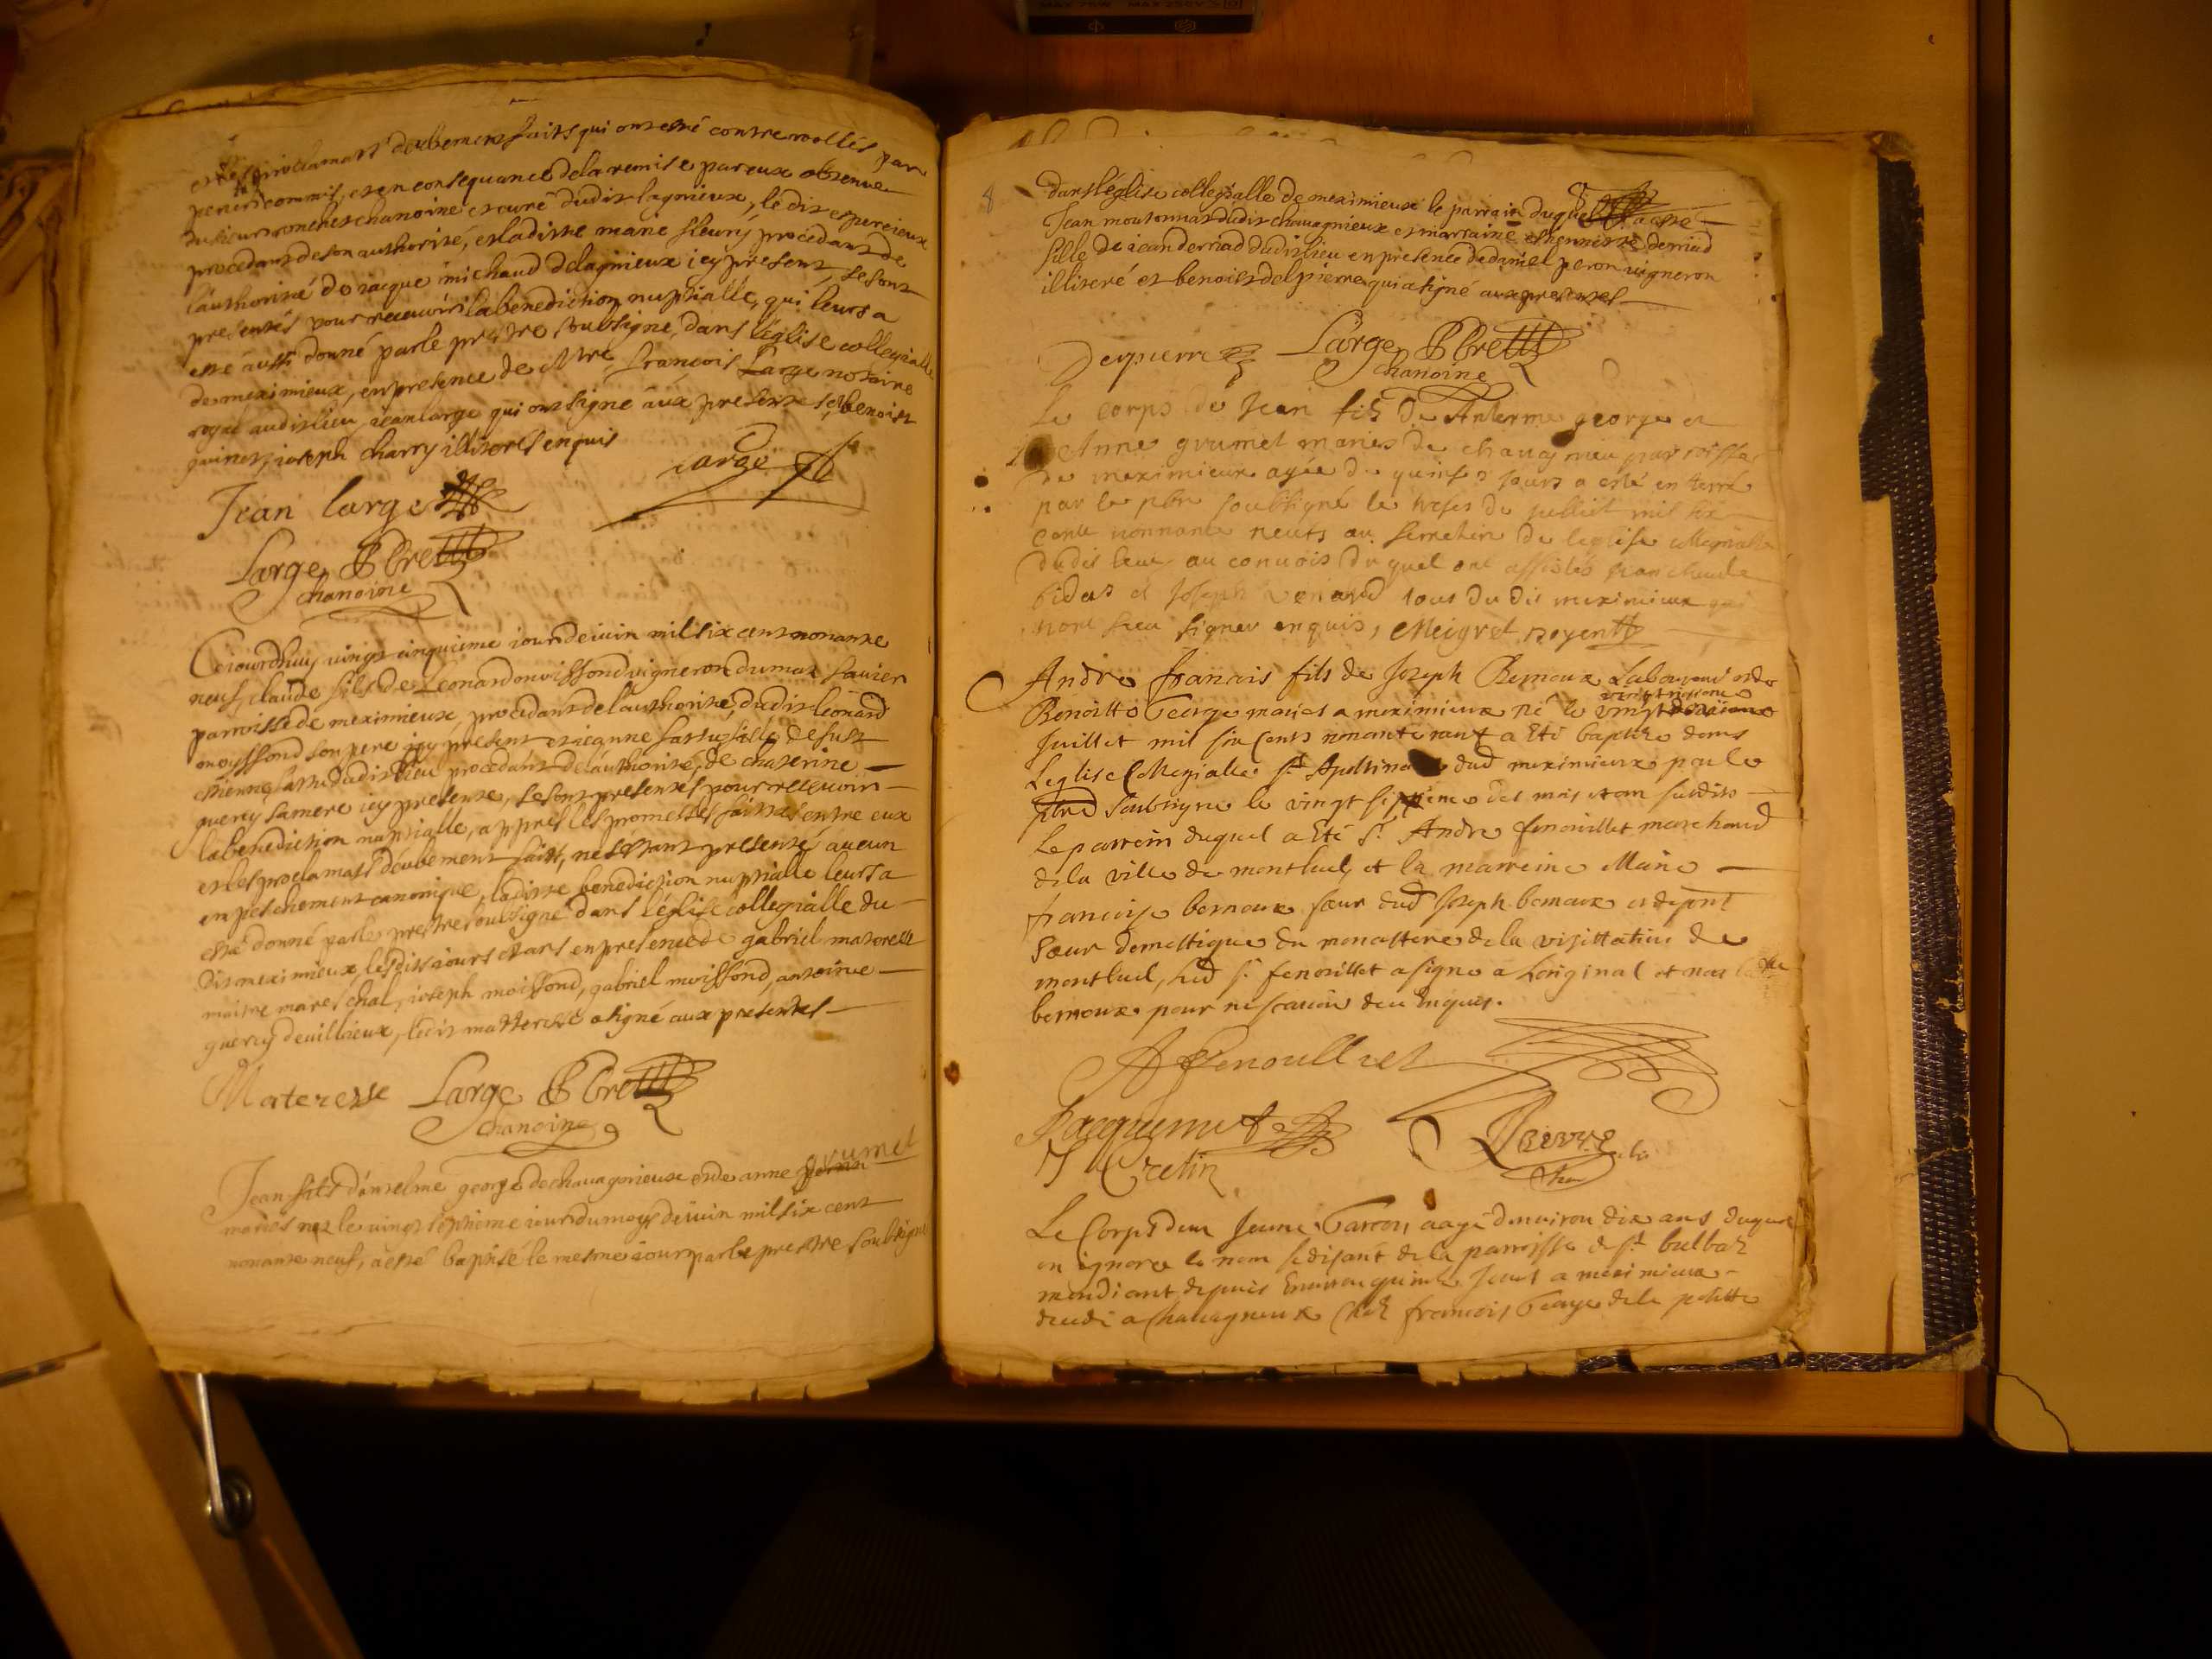 et les proclamats deubement faits qui ont esté contrerollés par
perier commis, et en consequance de la remise par eux obtenue
du sieur chanoine et curé dudit lagnieux, ledit espereieux
procedant de son authorité, et laditte marie fleury procedant de
l'authorité de iacque michaud de lagnieux icy present, se sont
presentés pour recevoir la benediction nuptialle, qui leurs a
esté aussi donné par le prestre soubsigné, dans l'église collegialle
de meximieux, en presence de Mtre françois Large notaire
royal audit lieu, jean large qui ont signé aux presentes, benoist
guinet, ioseph charry illiterés enquis
Jean large Large
Large Pbre
chanoine
Ceiourdhuy vingt cinquieme iour de iuin mil six cent nonante
neuf, claude fils de Leonard moissond vigneron du mas
parroisse de meximieux, procedant de l'authorité, dudit léonard
moyssond son pere icy present et ieanne fille de fust
estienne dudit lieu procedant de l'authorité, de chaterine
quercy sa mere icy presente, se sont presentés pour recevoir
la benediction nuptialle, appres les promesses faittes entre eux
et les proclamats deubement faits, ne s'estant presenté aucun
enpeschement canonique, laditte benediction nuptialle leurs a
esté donné par le prestre soubsigné dans l'église collegialle du
dit meximieux, lesdits iours et ans en presence de gabriel materesse
maitre mareschal, ioseph moissond, gabriel moissond, antoine
quercy de villieux, ledit matteresse a signé aux presentes
Materesse Large Pbre
chanoine
Jean fils d'anselme george de chavagnieux et de anne grumel
mariés nez le vingt septieme iour du moys de iuin mil six cent
nonante neuf, a esté baptisé le mesme iour par le prestre soubsigné
8
dans l'église collegialle de meximieux le parrain duquel a esté
Jean moutonnat dudit chavagnieux et marraine estiennette derriad
fille de iean derriad dudit lieu en presence de daniel peron vigneron
illiteré et benoist delpierre qui a signé aux presentes
Depierre Large Pbre
chanoine
Le corps de Jean fils de Anterme george et
Anne grumel mariés de chavagnieu parroisse
de meximieux agée de quinse jours a esté en terré
par le pbre soubsigné le treses de julliet mil six
cent nonnante neufs au semetiere de leglise collegialle
dudit lieu au convois du quel ont assistés
bidat et Joseph venard tous du dit meximieux qui
nont sceu signer enquis, Meigret doyen
Andre francois fils de Joseph Bernoux Laboureur et de
Benoitte George mariés a meximieux né le vingt troisieme
Juillet mil six Cents nonante neuf a Eté baptize dans
Leglise Collegialle St Apollinaire dud meximieux par le
pbre soubsigné le vingt sixieme des mois et an susdits
Le parrein duquel a Eté Sr Andre fenouillet marchand
de la ville de montluel, et la marreine Marie
francoise bernoux sœur dud Joseph bernoux et
Sœur domestique du monastere de la visittation de
montluel, led sr fenouillet a signe a Loriginal et non
bernoux pour ne scavoir de ce Enquis.
A Fenoulliet
Jacquemet
J Cretin
Le Corps dun Jeune Garcon aagé denviron dix ans duquel
on ignore le nom se disant de la parroisse de St bulbas
mendiant depuis Environ quinze Jours a meximieux
decedé a Chavagneux Chez francois George dela